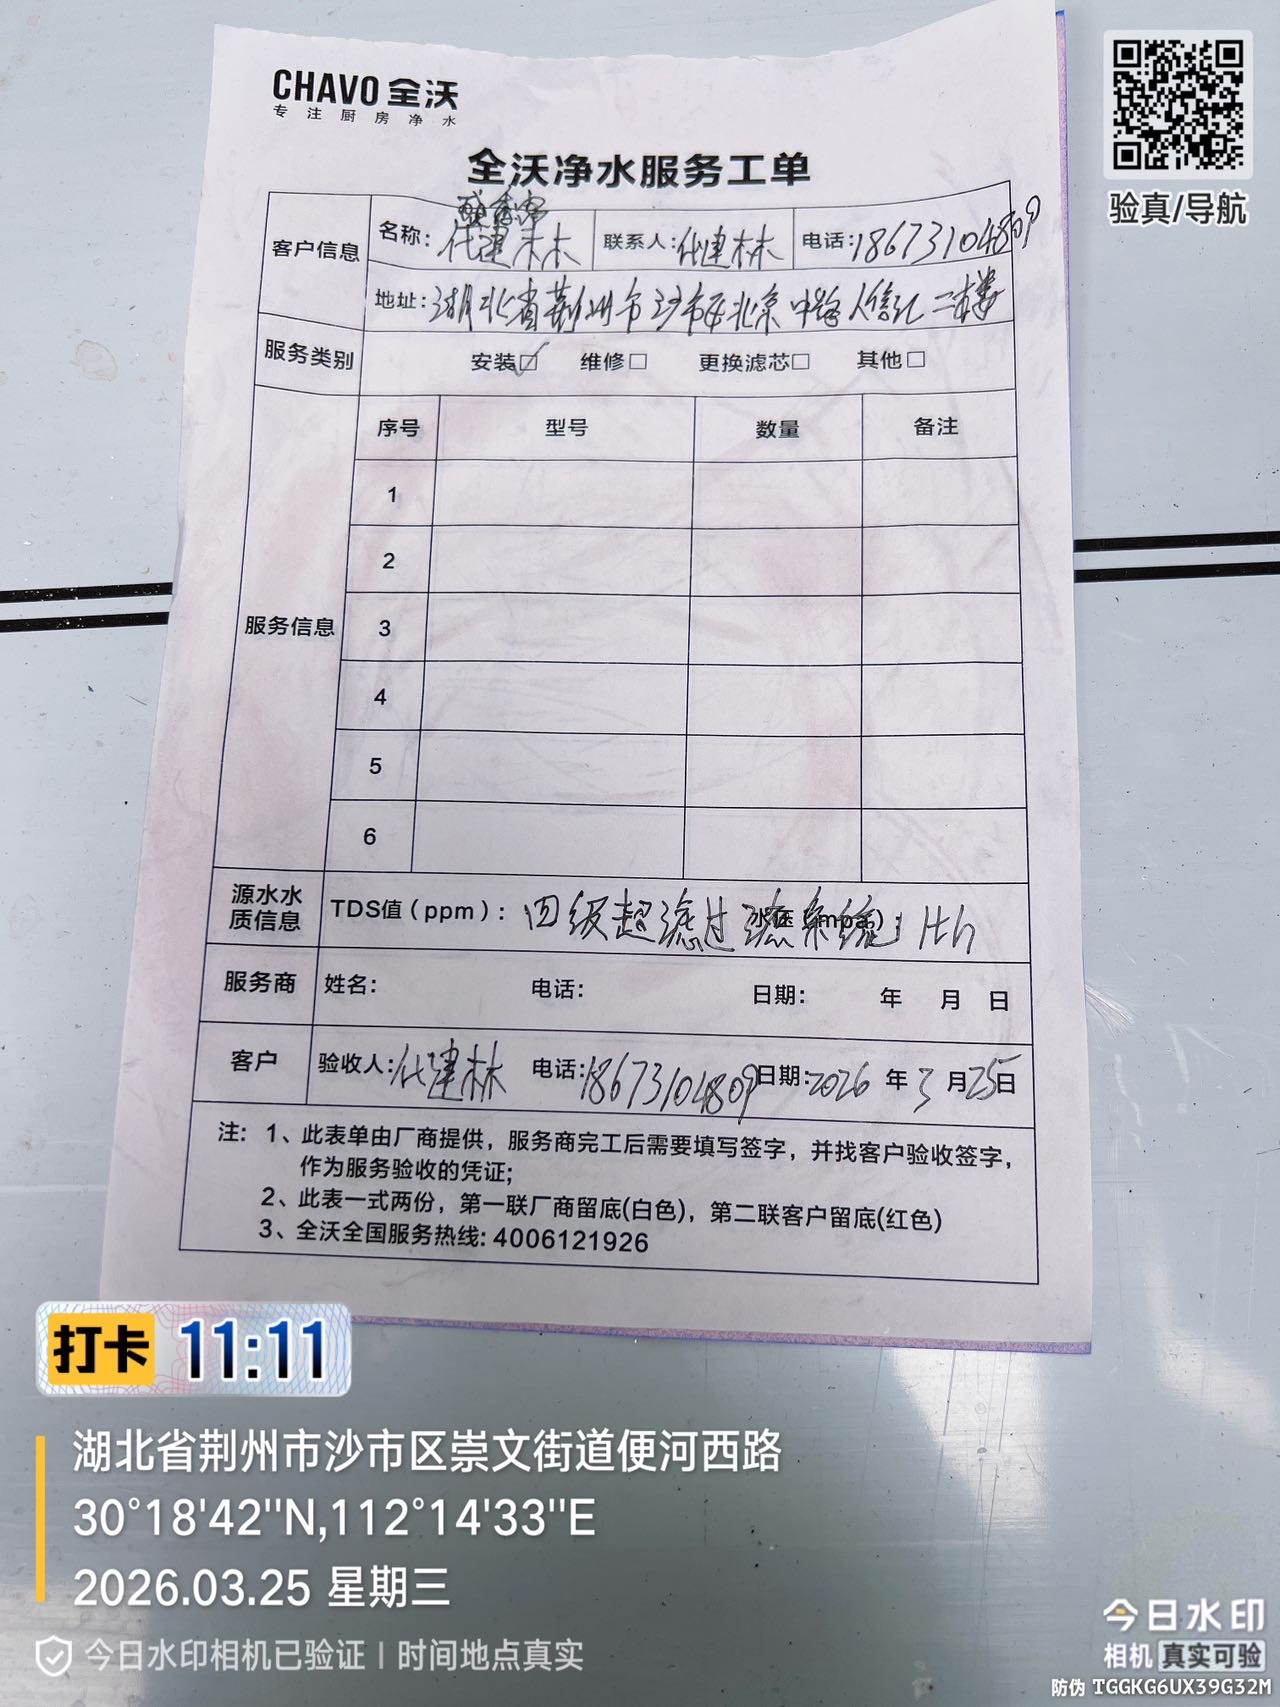 CHAVO 全沃
专注厨房净水
验真/导航
全沃净水服务工单
客户信息 名称: 代建林 联系人: 代建林 电话: 18673104809
地址: 湖北省荆州市沙市区北京中路人信汇二楼
服务类别 安装☑ 维修□ 更换滤芯□ 其他□
服务信息 序号 型号 数量 备注
1
2
3
4
5
6
源水水质信息 TDS值(ppm): 四级超滤过滤系统 水压(mpa): 1台
服务商 姓名: 电话: 日期: 年 月 日
客户 验收人: 代建林 电话: 18673104809 日期: 2026年3月25日
注: 1、此表单由厂商提供,服务商完工后需要填写签字,并找客户验收签字,
作为服务验收的凭证;
2、此表一式两份,第一联厂商留底(白色),第二联客户留底(红色)
3、全沃全国服务热线: 4006121926
打卡 11:11
湖北省荆州市沙市区崇文街道便河西路
30°18'42"N,112°14'33"E
2026.03.25 星期三
今日水印相机已验证 | 时间地点真实
今日水印
相机 真实可验
防伪 TGGKG6UX39G32M